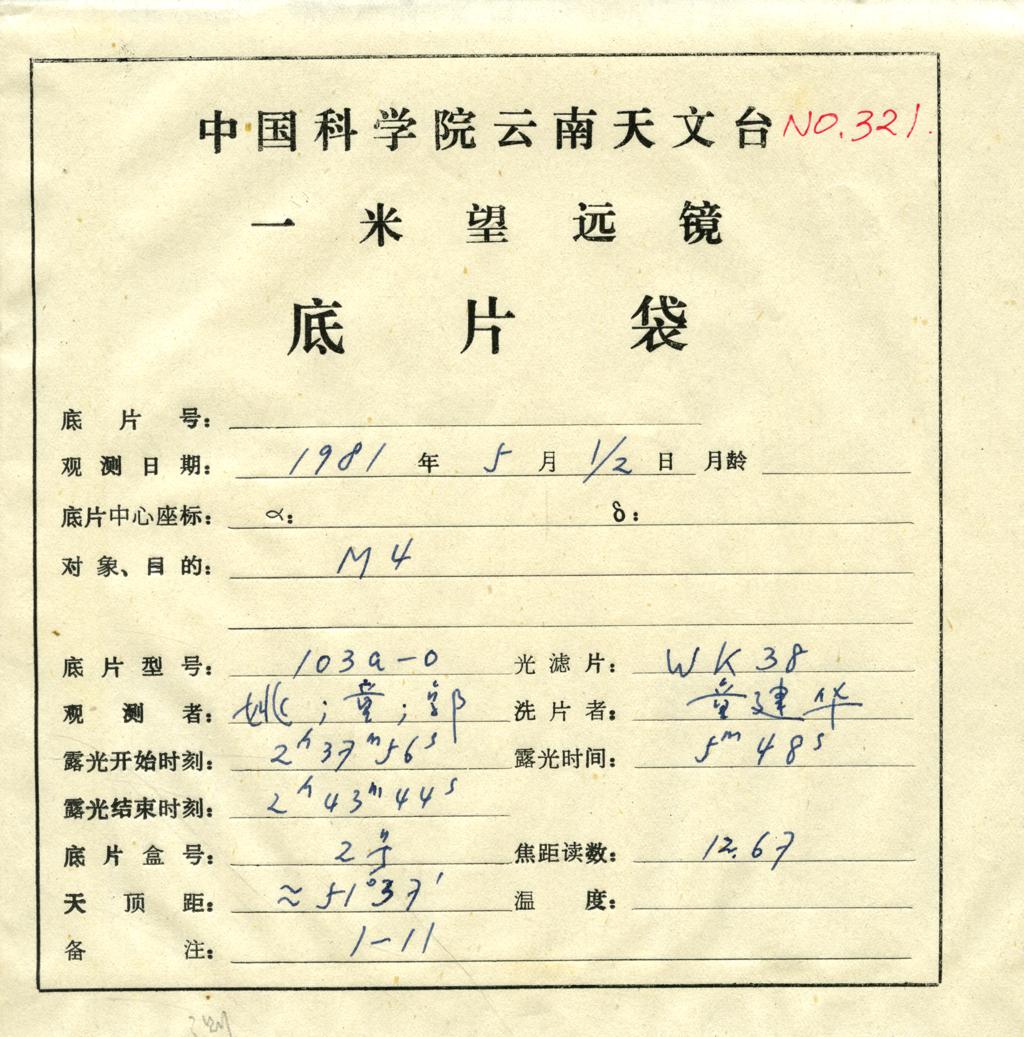 中国科学院云南天文台 NO.321.
一米望远镜
底片袋
底片号：
观测日期： 1981 年 5 月 1/2 日 月龄
底片中心座标： α： δ：
对象、目的： M4
底片型号： 103a-0 光滤片： WK38
观测者： 姚；童；郭 洗片者： 童建华
露光开始时刻： 2h37m56s 露光时间： 5m48s
露光结束时刻： 2h43m44s
底片盒号： 2号 焦距读数： 12.67
天顶距： ≈51°37′ 温度：
备注： 1-11